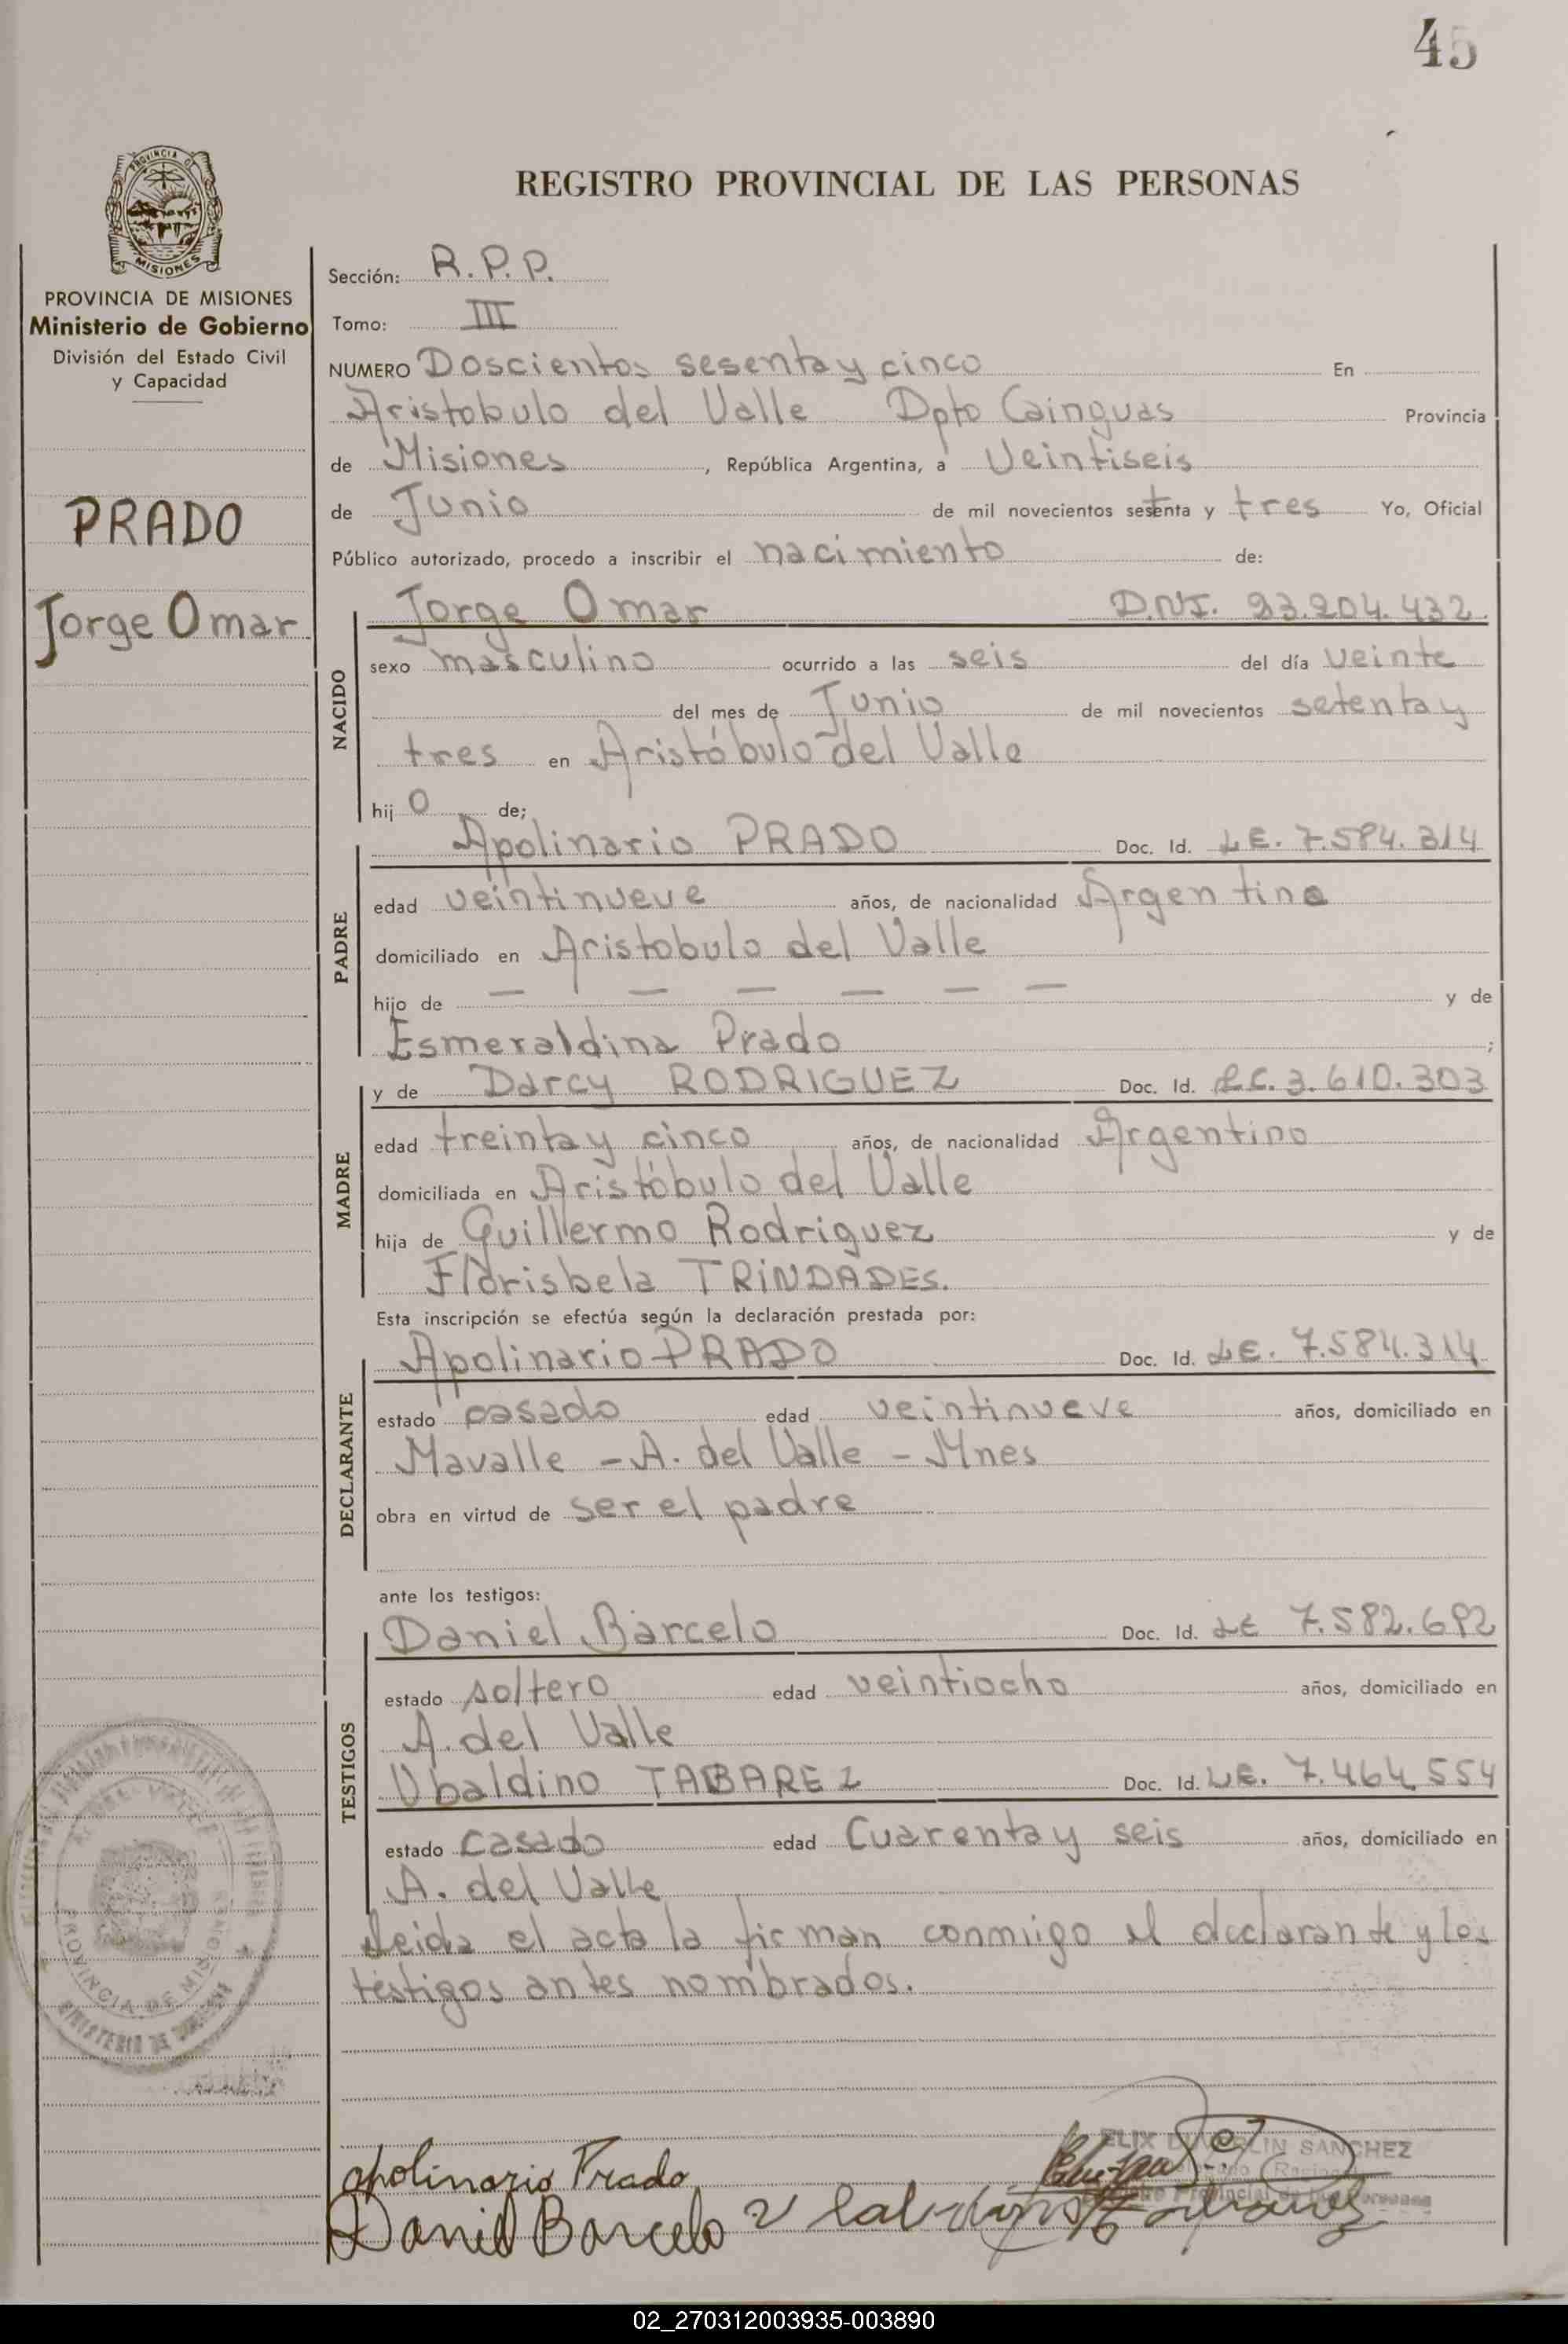 45
PROVINCIA DE MISIONES
PROVINCIA DE MISIONES
Ministerio de Gobierno
División del Estado Civil
y Capacidad
PRADO
Jorge Omar
REGISTRO PROVINCIAL DE LAS PERSONAS
Sección: R.P.P.
Tomo: III
NUMERO Doscientos sesenta y cinco En
Aristobulo del Valle Dpto Cainguas Provincia
de Misiones, República Argentina, a Veintiseis
de Junio de mil novecientos setenta y tres Yo, Oficial
Público autorizado, procedo a inscribir el nacimiento de:
NACIDO
Jorge Omar D.N.I. 23.204.432
sexo masculino ocurrido a las seis del día veinte
del mes de Junio de mil novecientos setenta y
tres en Aristóbulo del Valle
hij o de;
PADRE
Apolinario PRADO Doc. Id. L.E. 7.584.314
edad veintinueve años, de nacionalidad Argentina
domiciliado en Aristobulo del Valle
hijo de — — — — — — y de
Esmeraldina Prado ;
MADRE
y de Darcy RODRIGUEZ Doc. Id. L.C. 3.610.303
edad treinta y cinco años, de nacionalidad Argentino
domiciliada en Aristóbulo del Valle
hija de Guillermo Rodriguez y de
Florisbela TRINDADES.
Esta inscripción se efectúa según la declaración prestada por:
DECLARANTE
Apolinario PRADO Doc. Id. L.E. 7.584.314
estado casado edad veintinueve años, domiciliado en
Mavalle - A. del Valle - Mnes
obra en virtud de ser el padre
ante los testigos:
TESTIGOS
Daniel Barcelo Doc. Id. LE 7.582.692
estado soltero edad veintiocho años, domiciliado en
A. del Valle
Ubaldino TABAREZ Doc. Id. L.E. 7.464.554
estado casado edad Cuarenta y seis años, domiciliado en
A. del Valle
Leida el acta la firman conmigo el declarante y los
testigos antes nombrados.
PROVINCIA DE MISIONES
MINISTERIO DE
SANCHEZ
apolinario Prado
Daniel Barcelo
02_270312003935-003890